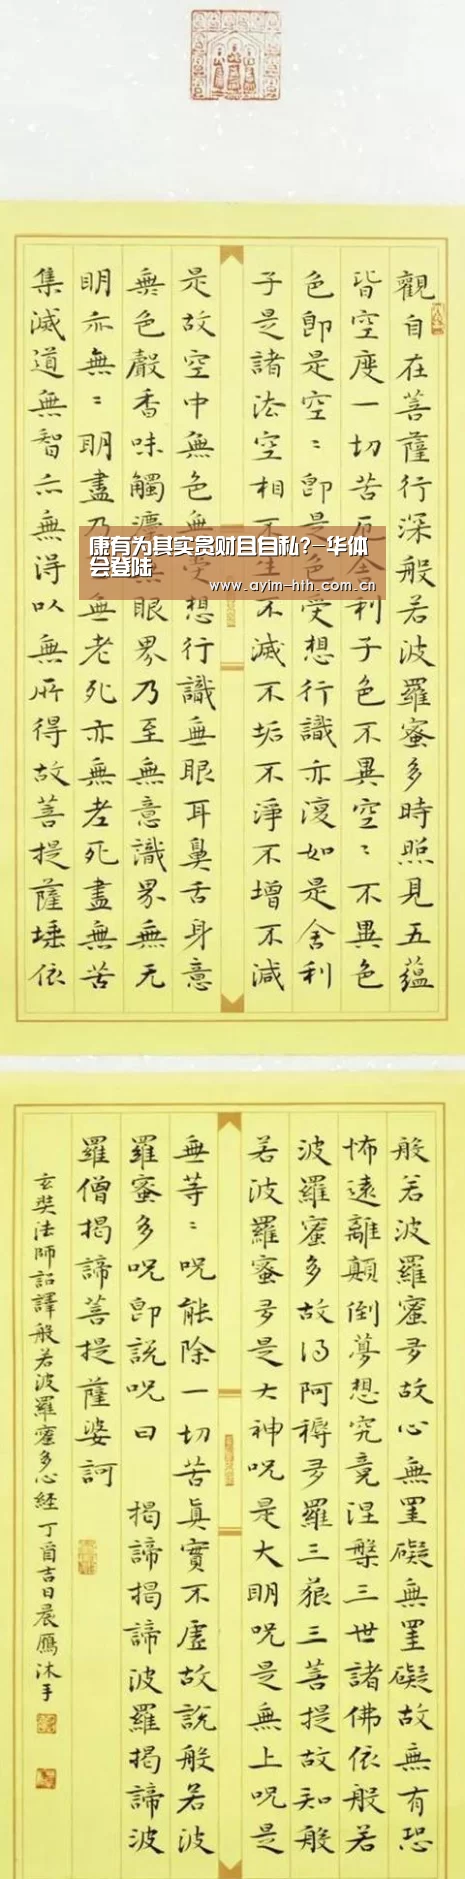 觀自在菩薩行深般若波羅蜜多時照見五蘊
皆空度一切苦厄舍利子色不異空〻不異色
色即是空〻即是色受想行識亦復如是舍利
子是諸法空相不生不滅不垢不淨不增不減
是故空中無色無受想行識無眼耳鼻舌身意
無色聲香味觸灋無眼界乃至無意識界無无
明亦無〻明盡乃至無老死亦無老死盡無苦
集滅道無智亦無得以無所得故菩提薩埵依
康有为其实贪财且自私?-华体
会登陆
www.ayim-hth.com.cn
般若波羅蜜多故心無罣礙無罣礙故無有恐
怖遠離顛倒夢想究竟涅槃三世諸佛依般若
波羅蜜多故得阿耨多羅三藐三菩提故知般
若波羅蜜多是大神呪是大明呪是無上呪是
無等〻呪能除一切苦真實不虛故說般若波
羅蜜多呪即說呪曰 揭諦揭諦波羅揭諦波
羅僧揭諦菩提薩婆訶
玄奘法師詔譯般若波羅蜜多心經 丁酉吉日晨雁沐手